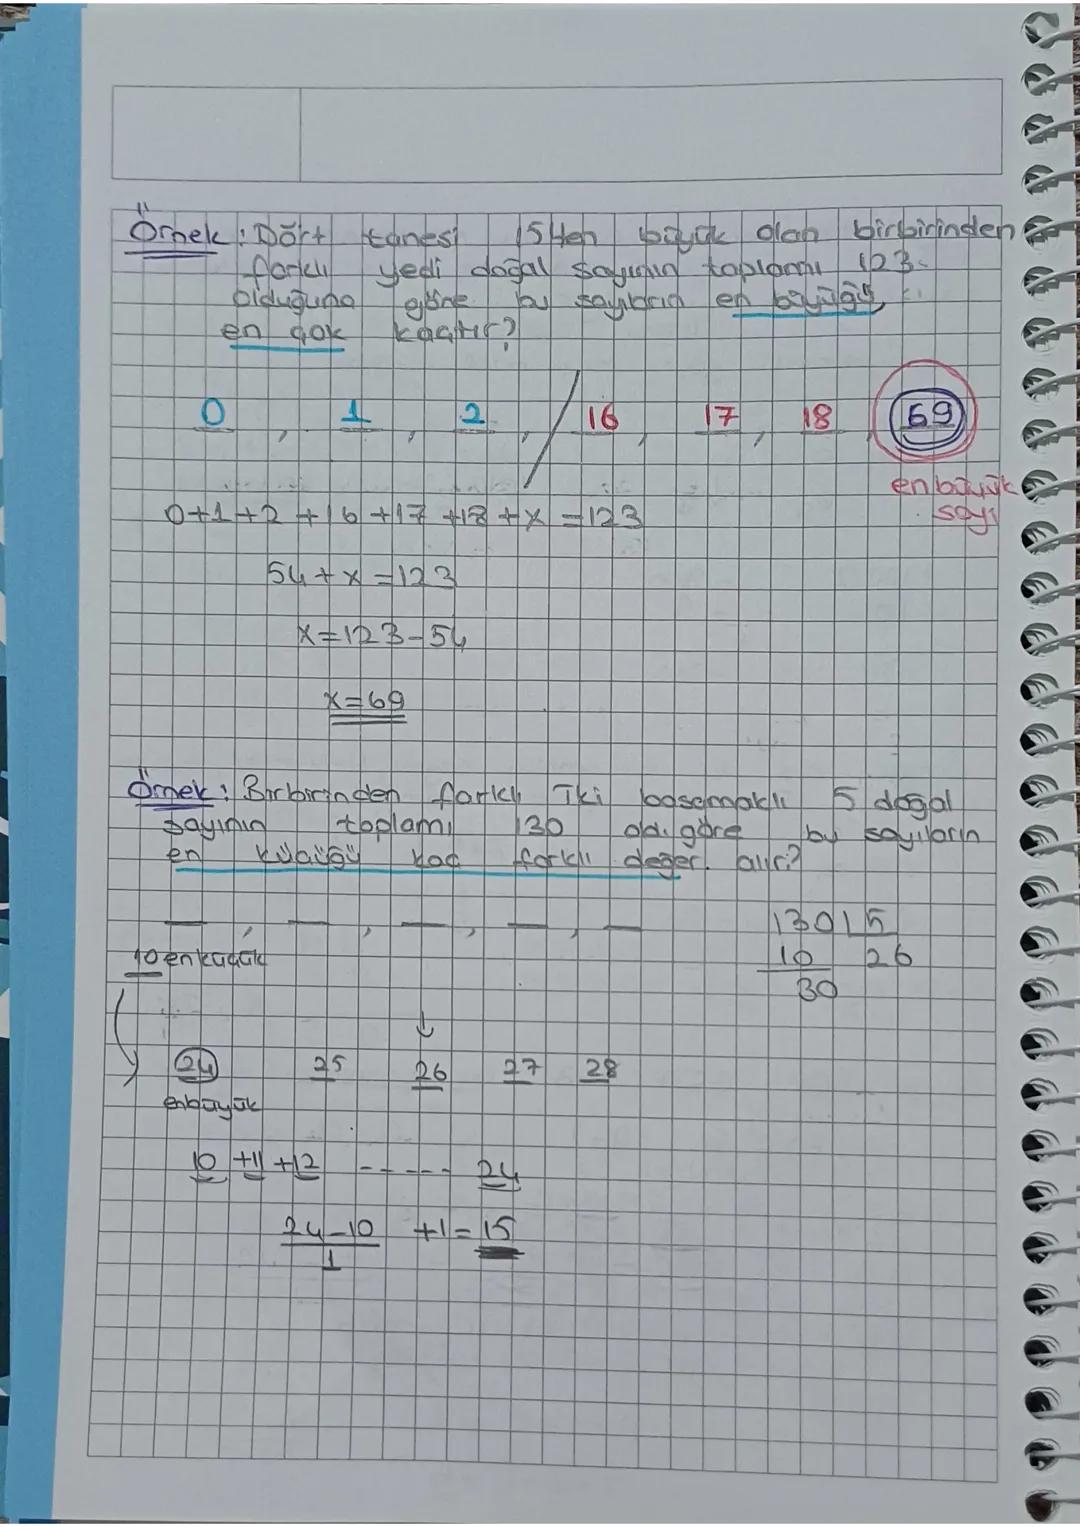 Örnek : Dört tanesi 15'ten büyük olan birbirinden
farklı yedi doğal sayının toplamı 123
olduğuna göre bu sayıların en büyüğü
en çok kaçtır?
0 , 1 , 2 , / 16 , 17 , 18 69
en büyük
sayı
0+1+2+16+17+18+x=123
54+x=123
x=123-54
x=69
Örnek : Birbirinden farklı İki basamaklı 5 doğal
sayının toplamı 130 old. göre bu sayıların
en küçüğü kaç farklı değer alır?
__ , __ , __ , __ , __
130 5
10 26
30
10 en küçük
↓
24 25 26 27 28
en büyük
10 +11 +12 ----- 24
24-10 +1=15
1